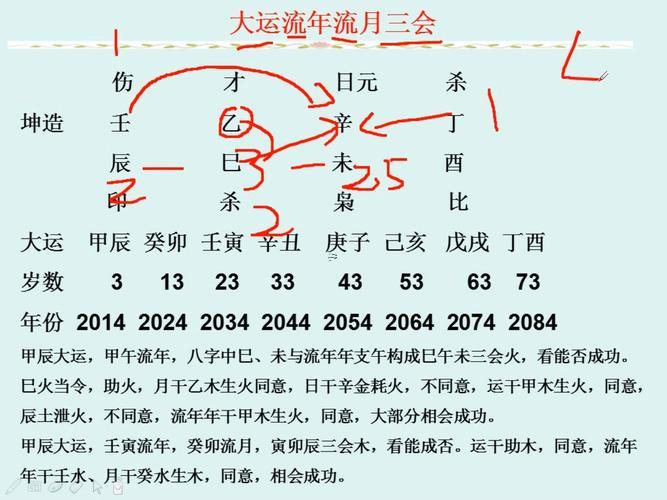 大运流年流月三会
1
L
伤 才 日元 杀
坤造 壬 乙 辛 丁 1
辰 巳 未 酉
2 3 2.5
印 杀 枭 比
2
大运 甲辰 癸卯 壬寅 辛丑 庚子 己亥 戊戌 丁酉
岁数 3 13 23 33 43 53 63 73
年份 2014 2024 2034 2044 2054 2064 2074 2084
甲辰大运，甲午流年，八字中巳、未与流年年支午构成巳午未三会火，看能否成功。
巳火当令，助火，月干乙木生火同意，日干辛金耗火，不同意，运干甲木生火，同意，
辰土泄火，不同意，流年年干甲木生火，同意，大部分相会成功。
甲辰大运，壬寅流年，癸卯流月，寅卯辰三会木，看能成否。运干助木，同意，流年
年干壬水、月干癸水生木，同意，相会成功。